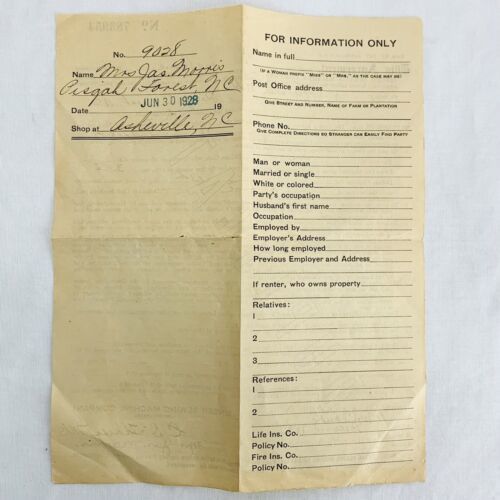 No. 9028
Name Mrs Jas. Morris
Pisgah Forest, NC
Date JUN 30 1928 19
Shop at Asheville, NC
FOR INFORMATION ONLY
Name in full
(If a Woman prefix "Miss" or "Mrs." as the case may be)
Post Office address
Give Street and Number, Name of Farm or Plantation
Phone No.
Give Complete Directions so Stranger can Easily Find Party
Man or woman
Married or single
White or colored
Party's occupation
Husband's first name
Occupation
Employed by
Employer's Address
How long employed
Previous Employer and Address
If renter, who owns property
Relatives:
1
2
3
References:
1
2
Life Ins. Co.
Policy No.
Fire Ins. Co.
Policy No.